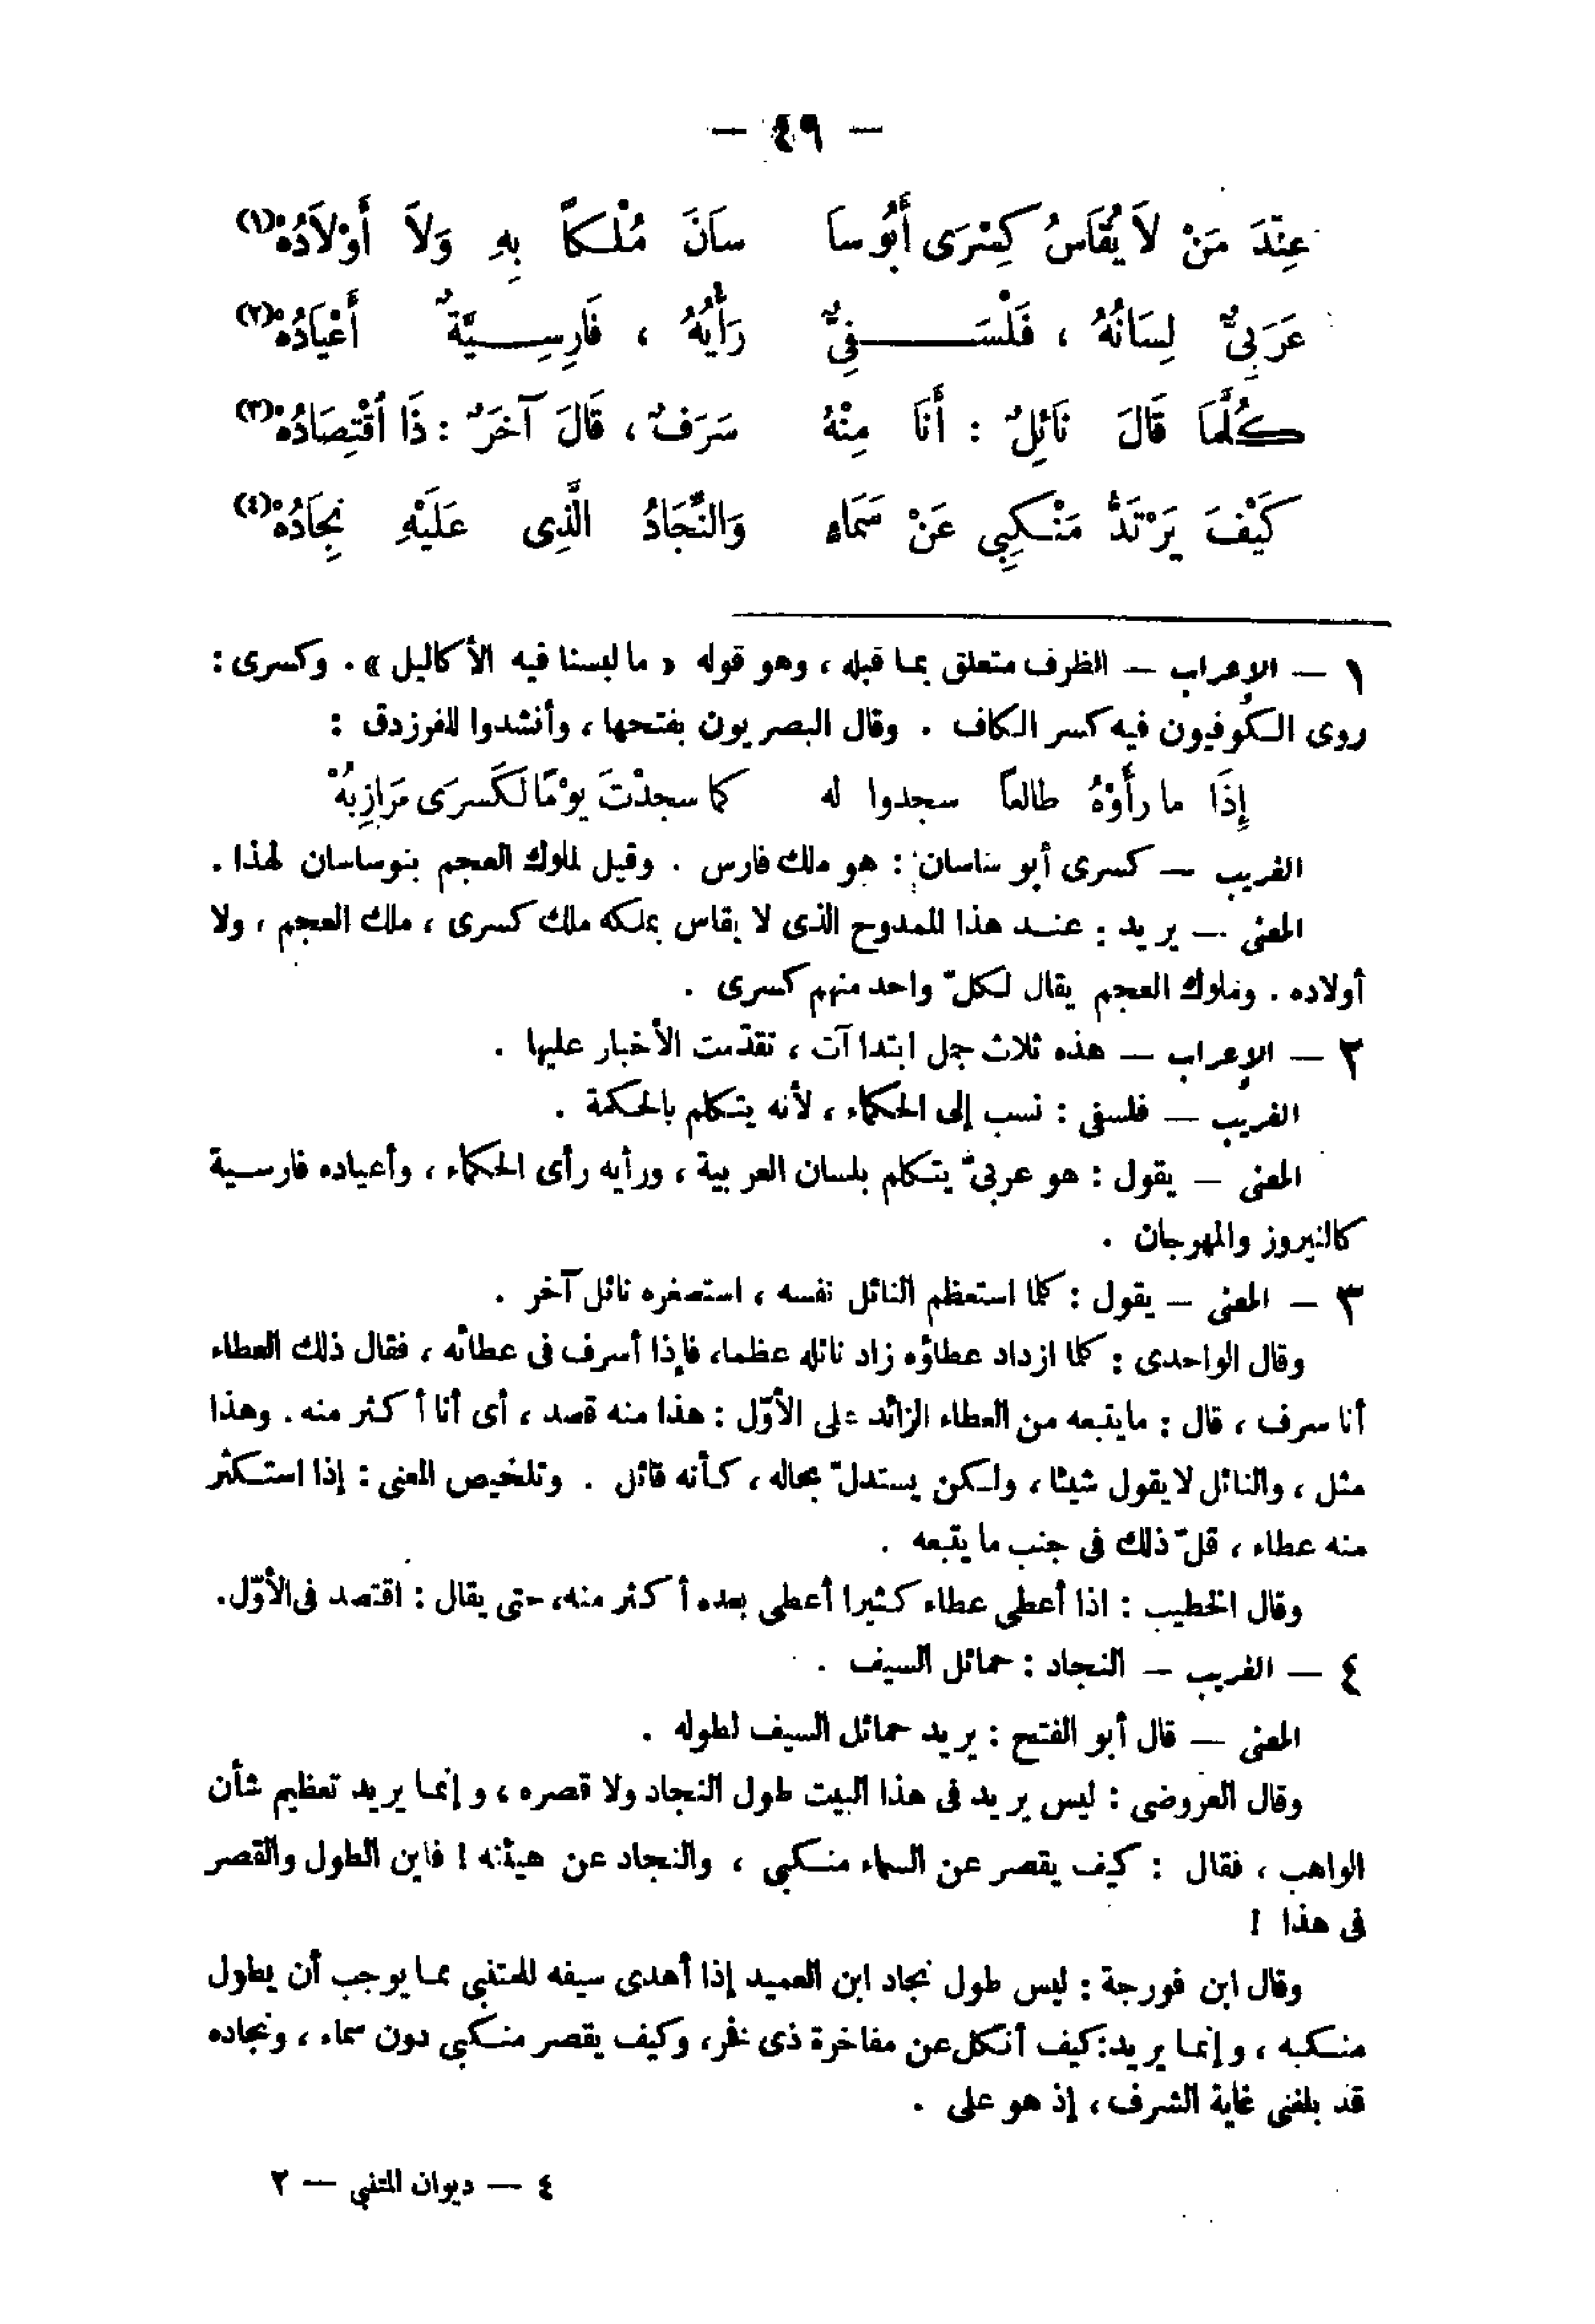 — ٤٩ —
عِنْدَ مَنْ لَا يُقَاسُ كِسْرَى أَبُو سَا سَانَ مُلْكًا بِهِ وَلَا أَوْلَادُهْ(١)
عَرَبِيٌّ لِسَانُهُ ، فَلْسَفِيٌّ رَأْيُهُ ، فَارِسِيَّةٌ أَعْيَادُهْ(٢)
كُلَّمَا قَالَ نَائِلٌ : أَنَا مِنْهُ سَرَفٌ ، قَالَ آخَرٌ : ذَا اُقْتِصَادُهْ(٣)
كَيْفَ يَرْتَدُّ مَنْكِبِى عَنْ سَمَاءٍ وَالنِّجَادُ الَّذِى عَلَيْهِ نِجَادُهْ(٤)
١ — الإعراب — الظرف متعلق بما قبله ، وهو قوله « ما لبسنا فيه الأكاليل » . وكسرى :
روى الكوفيون فيه كسر الكاف . وقال البصريون بفتحها ، وأنشدوا للفرزدق :
إِذَا ما رأَوْهُ طالعاً سجدوا له كما سجدْتَ يوْمًا لَكَسرَى مَرَازِبُهْ
الغريب — كسرى أبو ساسان : هو ملك فارس . وقيل لملوك العجم بنو ساسان لهذا .
المعنى — يريد : عند هذا الممدوح الذى لا يقاس بملكه ملك كسرى ، ملك العجم ، ولا
أولاده . وملوك العجم يقال لكلّ واحد منهم كسرى .
٢ — الإعراب — هذه ثلاث جمل ابتداآت ، تقدّمت الأخبار عليها .
الغريب — فلسفى : نسب إلى الحكماء ، لأنه يتكلم بالحكمة .
المعنى — يقول : هو عربىّ يتكلم بلسان العربية ، ورأيه رأى الحكماء ، وأعياده فارسية
كالنيروز والمهرجان .
٣ — المعنى — يقول : كلما استعظم النائل نفسه ، استصغره نائل آخر .
وقال الواحدى : كلما ازداد عطاؤه زاد نائله عظما، فإذا أسرف فى عطائه ، فقال ذلك العطاء
أنا سرف ، قال : مايتبعه من العطاء الزائد على الأوّل : هذا منه قصد ، أى أنا أكثر منه . وهذا
مثل ، والنائل لا يقول شيئا ، ولكن يستدلّ بحاله ، كأنه قائل . وتلخيص المعنى : إذا استكثر
منه عطاء ، قلّ ذلك فى جنب ما يتبعه .
وقال الخطيب : اذا أعطى عطاء كثيرا أعطى بعده أكثر منه، حتى يقال : اقتصد فى الأوّل.
٤ — الغريب — النجاد : حمائل السيف .
المعنى — قال أبو الفتح : يريد حمائل السيف لطوله .
وقال العروضى : ليس يريد فى هذا البيت طول النجاد ولا قصره ، وإنما يريد تعظيم شأن
الواهب ، فقال : كيف يقصر عن السماء منكبى ، والنجاد عن هيئته ! فاين الطول والقصر
فى هذا !
وقال ابن فورجة : ليس طول نجاد ابن العميد إذا أهدى سيفه للمتنبى مما يوجب أن يطول
منكبه ، وإنما يريد: كيف أنكل عن مفاخرة ذى فخر، وكيف يقصر منكبى دون سماء ، ونجاده
قد بلغنى غاية الشرف ، إذ هو على .
٤ — ديوان المتنبى — ٢